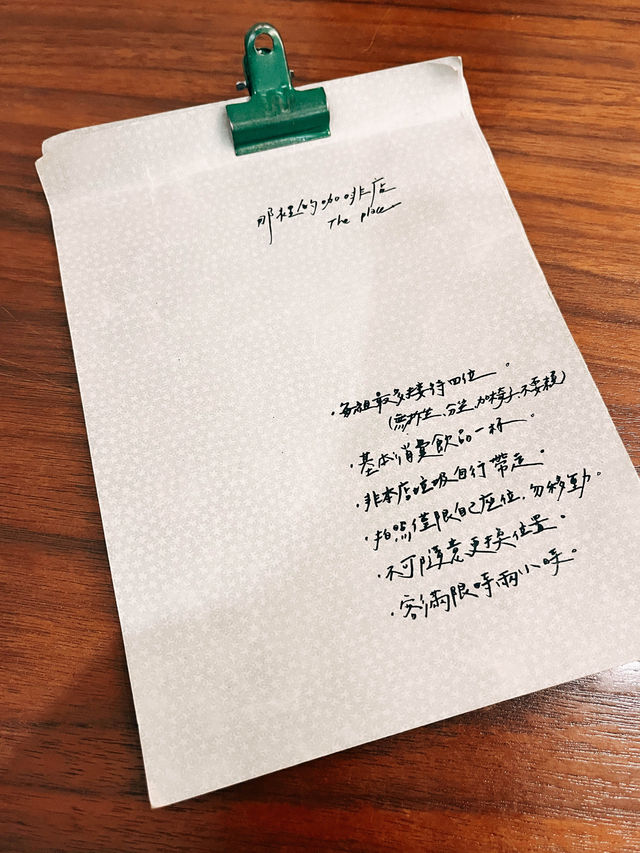 那裡的咖啡店
The place
·每組最多接待四位。
(無拆坐、分坐、加椅子、不要賴)
·基本消費飲品一杯。
·非本店垃圾自行帶走。
·拍照僅限自己座位,勿移動。
·不可隨意更換位置。
·客滿限時兩小時。